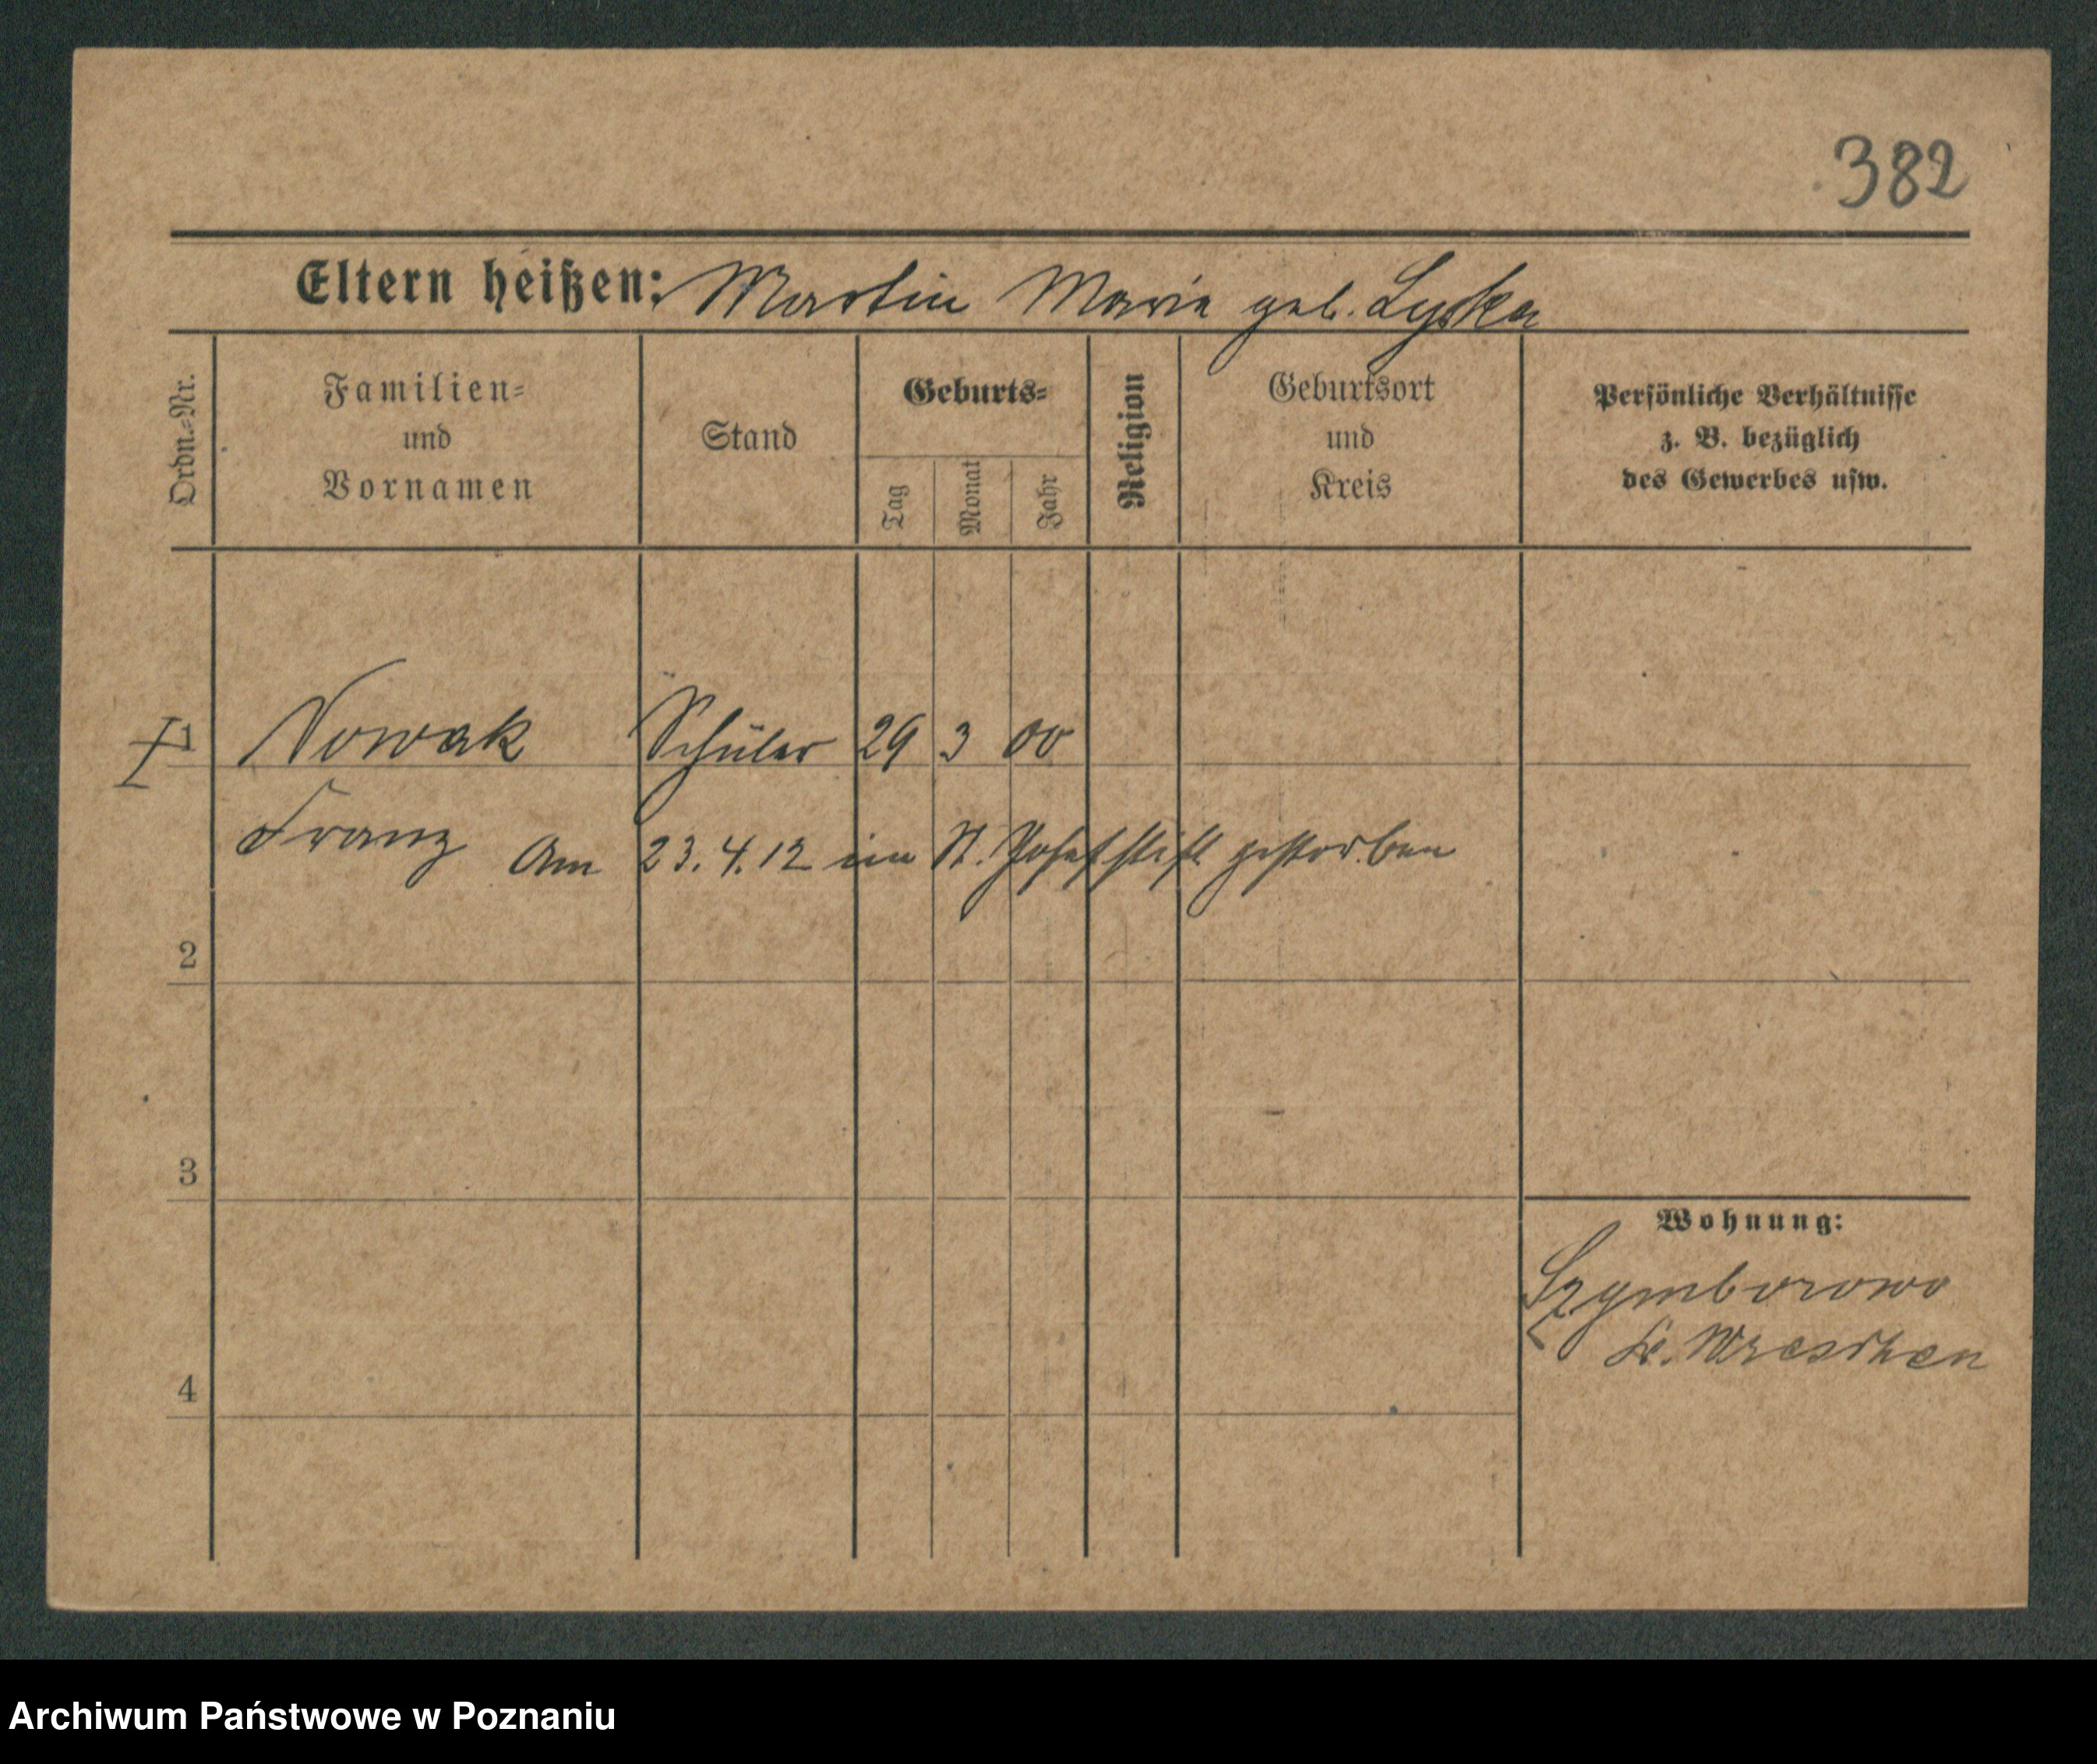 382
Eltern heißen: Martin Marie geb. Lyska
Ordn.-Nr.
Familien-
und
Vornamen
Stand
Geburts-
Tag
Monat
Jahr
Religion
Geburtsort
und
Kreis
Persönliche Verhältnisse
z. B. bezüglich
des Gewerbes usw.
1 Nowak Schüler 29 3 00
Franz Am 23.4.12 im St. Josefstift gestorben
2
3
Wohnung:
Szymborowo
Kr. Wreschen
4
Archiwum Państwowe w Poznaniu